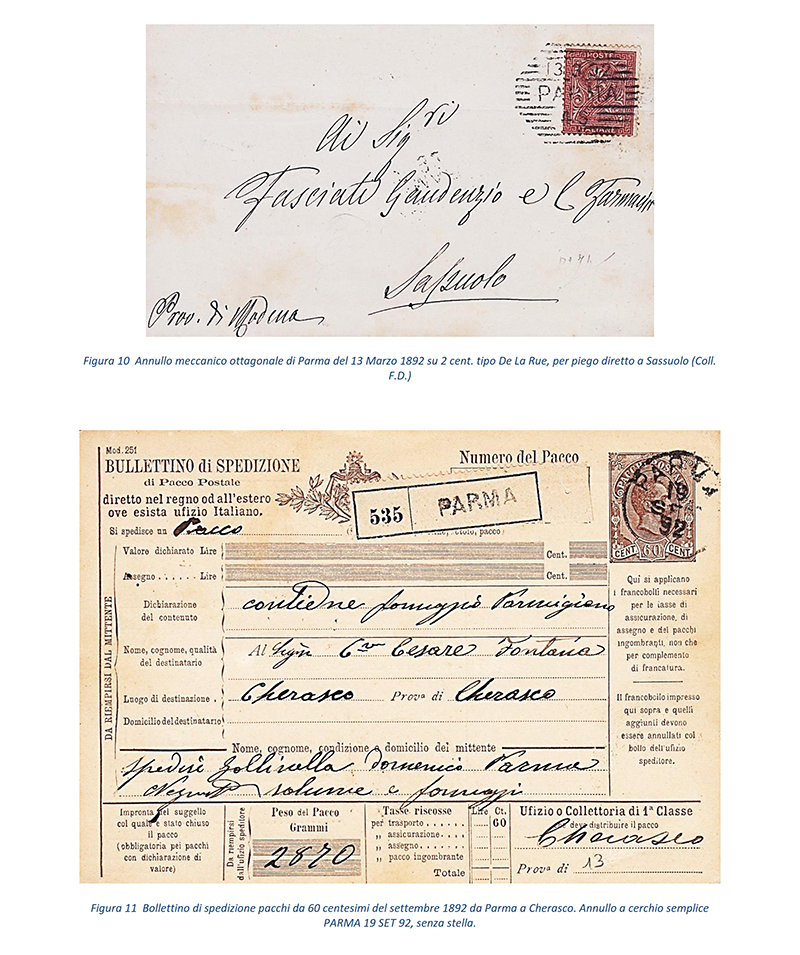 13 3 92
PARMA
POSTE
ITALIANE
Ai Sigri
Fasciati Gaudenzio e C. Farmacisti
Sassuolo
Prov. di Modena
Figura 10 Annullo meccanico ottagonale di Parma del 13 Marzo 1892 su 2 cent. tipo De La Rue, per piego diretto a Sassuolo (Coll.
F.D.)
Mod. 251
BULLETTINO di SPEDIZIONE
di Pacco Postale
diretto nel regno od all'estero
ove esista ufizio Italiano.
Numero del Pacco
535 PARMA
PARMA
19
SET
92
CENT. 60 CENT.
Si spedisce un Pacco
Valore dichiarato Lire Cent.
Assegno . . . . . . Lire Cent.
DA RIEMPIRSI DAL MITTENTE
Dichiarazione
del contenuto
contiene formaggio Parmigiano
Nome, cognome, qualità
del destinatario
Al Sign Cav Cesare Fontana
Luogo di destinazione . Cherasco Prova di Cherasco
Domicilio del destinatario
Qui si applicano
i francobolli necessari
per le tasse di
assicurazione, di
assegno e dei pacchi
ingombranti, non che
per complemento
di francatura.
Il francobollo impresso
qui sopra e quelli
aggiunti devono
essere annullati col
bollo dell'ufizio
speditore.
Nome, cognome, condizione e domicilio del mittente
Domenico Parma
salume e formaggi
Impronta del suggello
col quale è stato chiuso
il pacco
(obbligatoria pei pacchi
con dichiarazione di
valore)
Da riempirsi
dall'ufizio speditore
Peso del Pacco
Grammi
2870
Tasse riscosse Lire Ct.
per trasporto . . . . . . 60
„ assicurazione. . . .
„ assegno . . . . . .
„ pacco ingombrante
Totale
Ufizio o Collettoria di 1ª Classe
che deve distribuire il pacco
Cherasco
Prova di 13
Figura 11 Bollettino di spedizione pacchi da 60 centesimi del settembre 1892 da Parma a Cherasco. Annullo a cerchio semplice
PARMA 19 SET 92, senza stella.